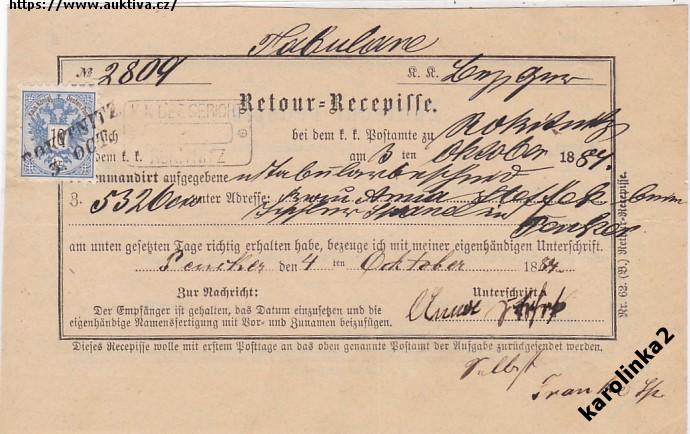 https://www.auktiva.cz/
Tabulare
№ 2809 K. K.
Retour-Recepisse.
ROKITNITZ
3 OCT
10
K.K. BEZ. GERICHT
ROKITNITZ
bei dem k. k. Postamte zu Rokitnitz
dem k. k. am 3 ten Oktober 1884.
ommandirt aufgegebene Tabularbescheid
Z. 5326 unter Adresse: Frau Anna
in
am unten gesetzten Tage richtig erhalten habe, bezeuge ich mit meiner eigenhändigen Unterschrift.
Pencker den 4 ten Oktober 1884.
Zur Nachricht: Unterschrift:
Der Empfänger ist gehalten, das Datum einzusetzen und die
eigenhändige Namensfertigung mit Vor- und Zunamen beizufügen.
Dieses Recepisse wolle mit erstem Posttage an das oben genannte Postamt der Aufgabe zurückgesendet werden.
Selbst
Nr. 62. (B.) Retour-Recepisse.
karolinka2